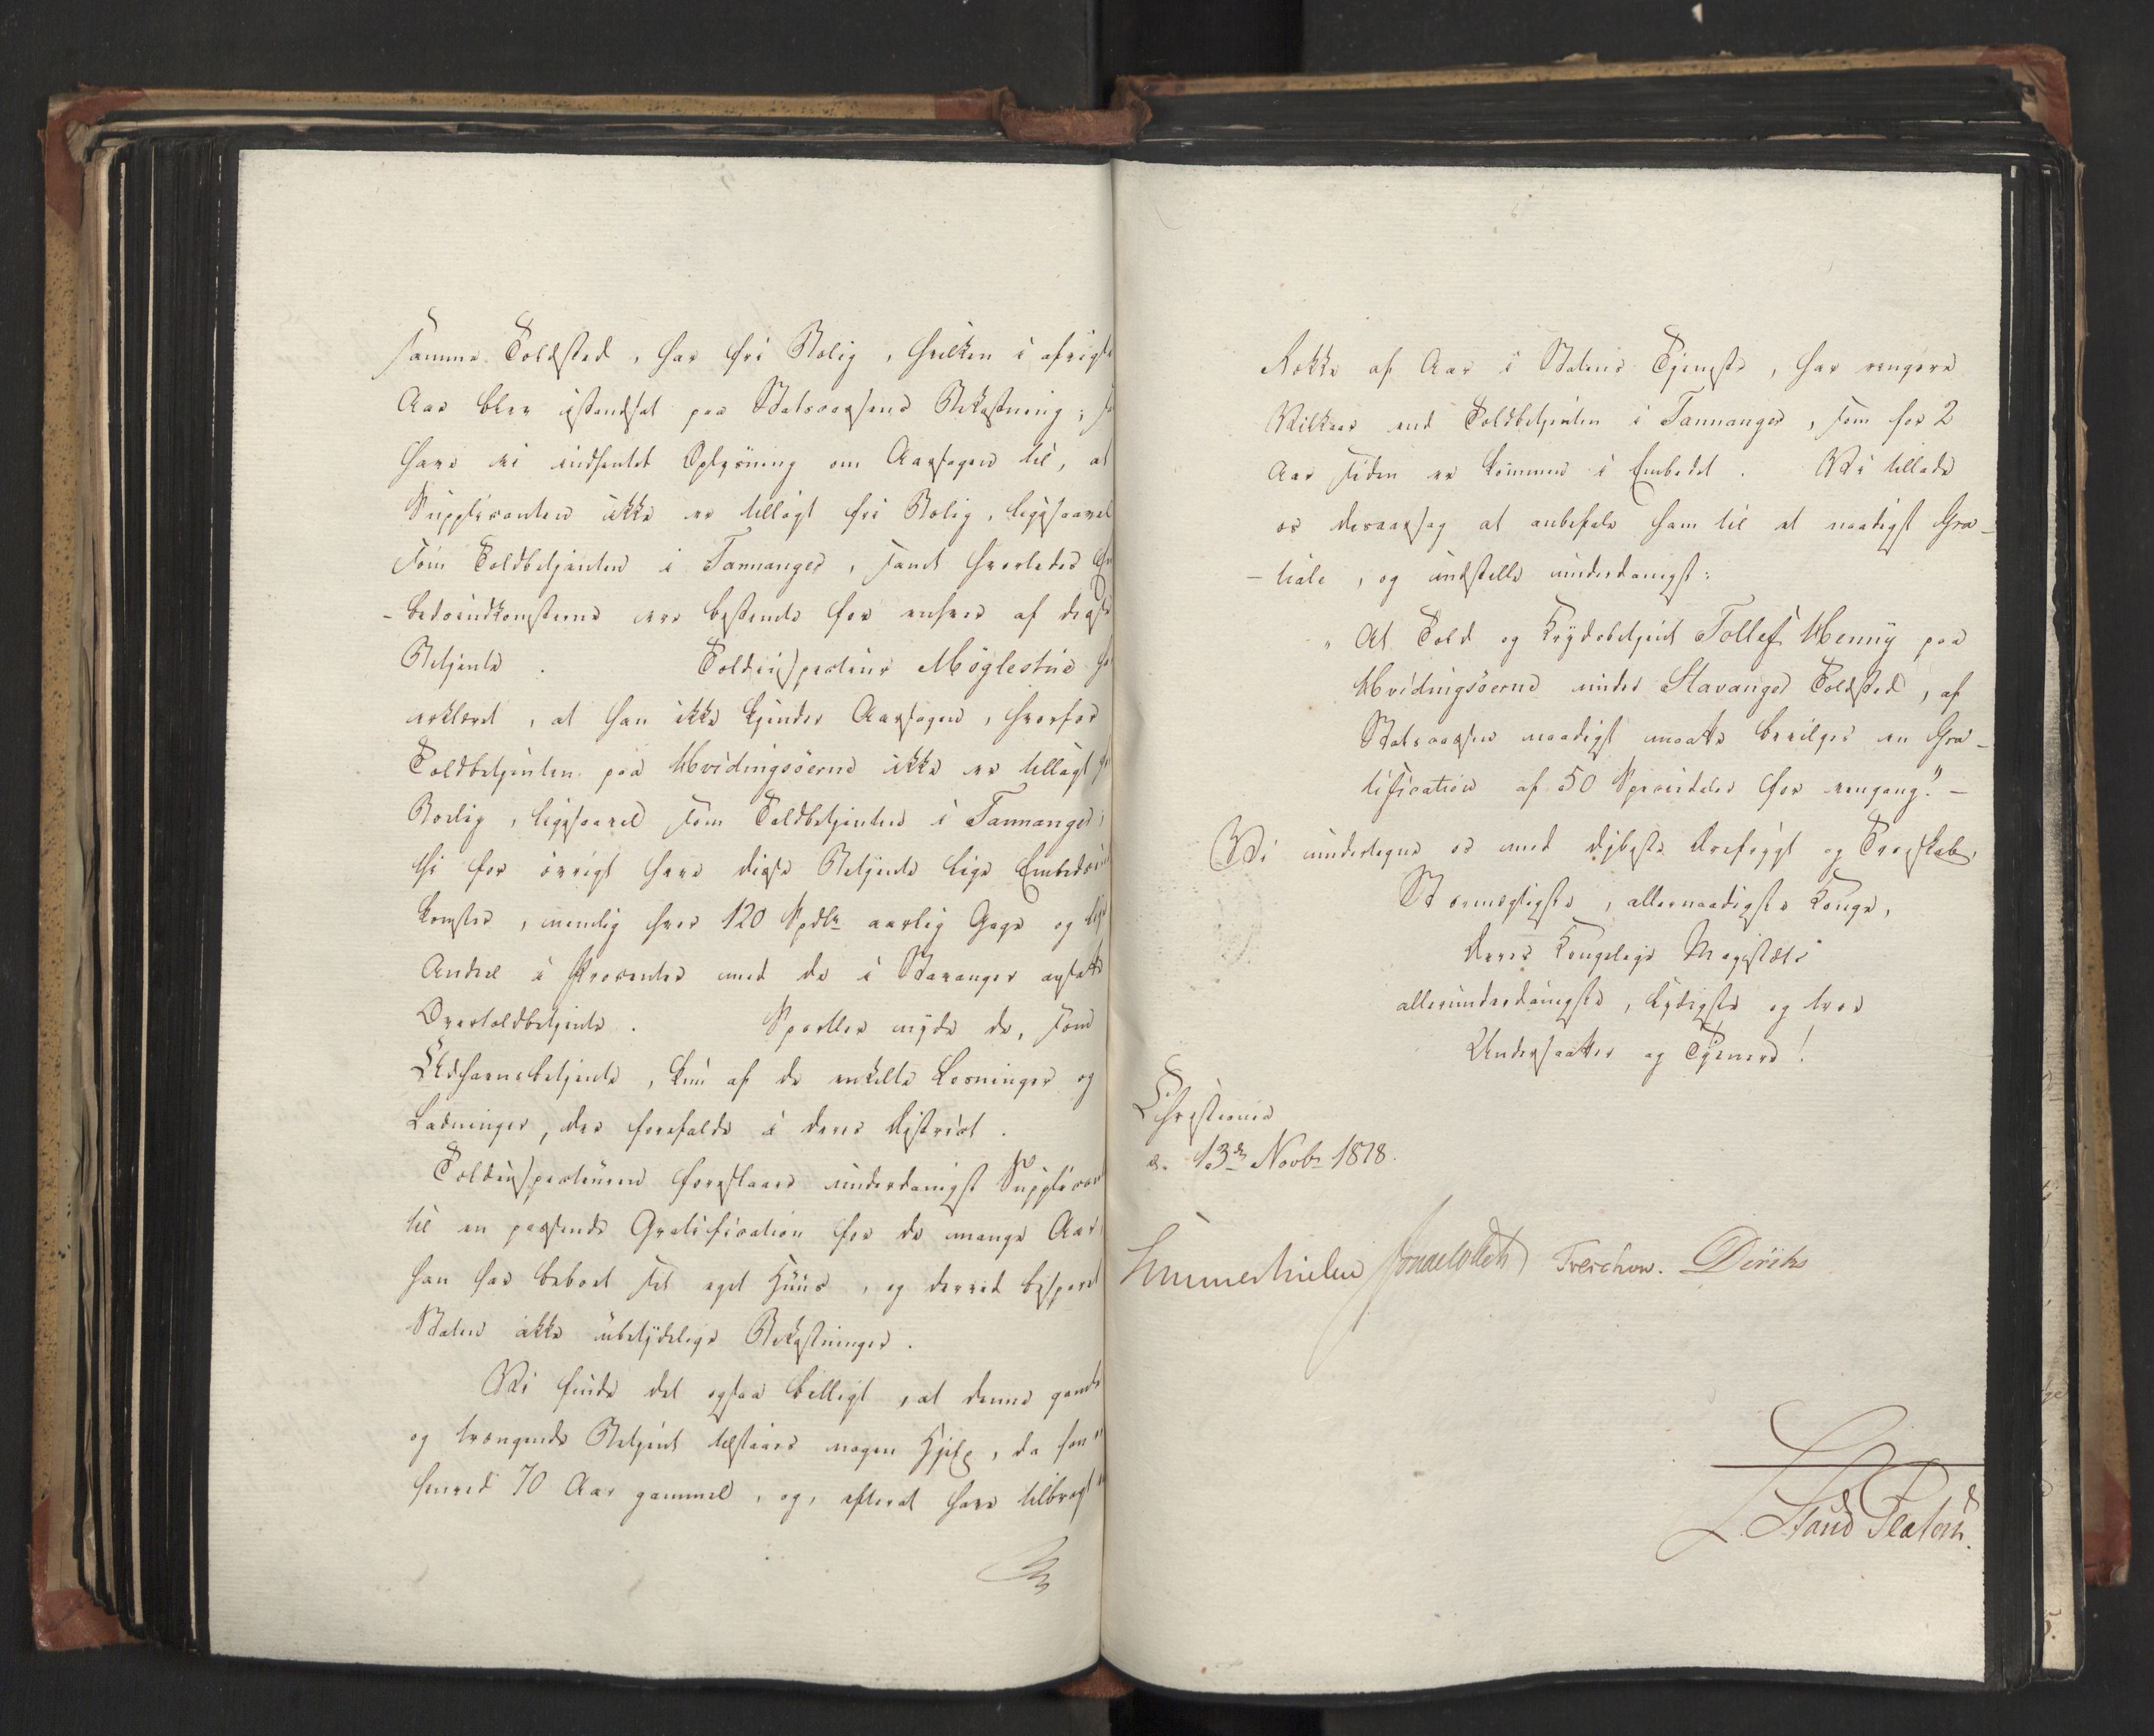 samme Toldsted, har fri Bolig, hvilken i afvigte
Aar blev istandsat paa Statscassens Bekostning; saa
have vi indhentet Oplysning om Aarsagen til, at
Supplicanten ikke er tillagt fri Bolig, ligesaavel
som Toldbetjenten i Tannanger, samt hvorledes Em
-bedsindkomsterne ere bestemte for enhver af disse
Betjente. Toldinspecteur Møglestue har
erklæret, at han ikke kjender Aarsagen, hvorfor
Toldbetjenten paa Hvidingsøerne ikke er tillagt fri
Bolig, ligesaavel som Toldbetjenten i Tannanger;
thi for øvrigt have disse Betjente lige Embedsind
komster, nemlig hver 120 Spdlr aarlig Gage og lige
Andeel i Procenter med de i Stavanger ansatte
Overtoldbetjente. Sportler nyde de, som
Udhavnsbetjente, kun af de enkelte Losninger og
Ladninger, der forefalde i deres District.
Toldinspecteuren foreslaaer underdanigst Supplicanten
til en passende Gratification for de mange Aar
han har beboet sit eget Huus, og derved besparet
Staten ikke ubetydelige Bekostninger.
Vi finde det ogsaa billigt, at denne gamle
og trængende Betjent tilstaaes nogen Hjelp, da han er
henved 70 Aar gammel, og, efterat have tilbragt en
Række af Aar i Statens Tjeneste, har ringere
Vilkaar end Toldbetjenten i Tannanger, som for 2
Aar siden er kommen i Embedet. Vi tillade
os desaarsag at anbefale ham til et naadigst Gra-
-tiale, og indstille underdanigst:
"At Told og Krydsbetjent Tollef Henny paa
Hvidingsøerne under Stavanger Toldsted, af
Statscassen naadigst maatte bevilges en Gra-
tification af 50 Speciedaler for eengang." -
Vi undertegne os med dybeste Ærefrygt og Troskab,
Stormægtigste, allernaadigste Konge,
Deres Kongelige Majestæts
allerunderdanigste, lydigste og troe
Undersaatter og Tjenere!
Christiania
d. 13de Novbr 1818.
Hummerhielm Sommerfeldt Treschow. Diriks
L. Stoud Platou.